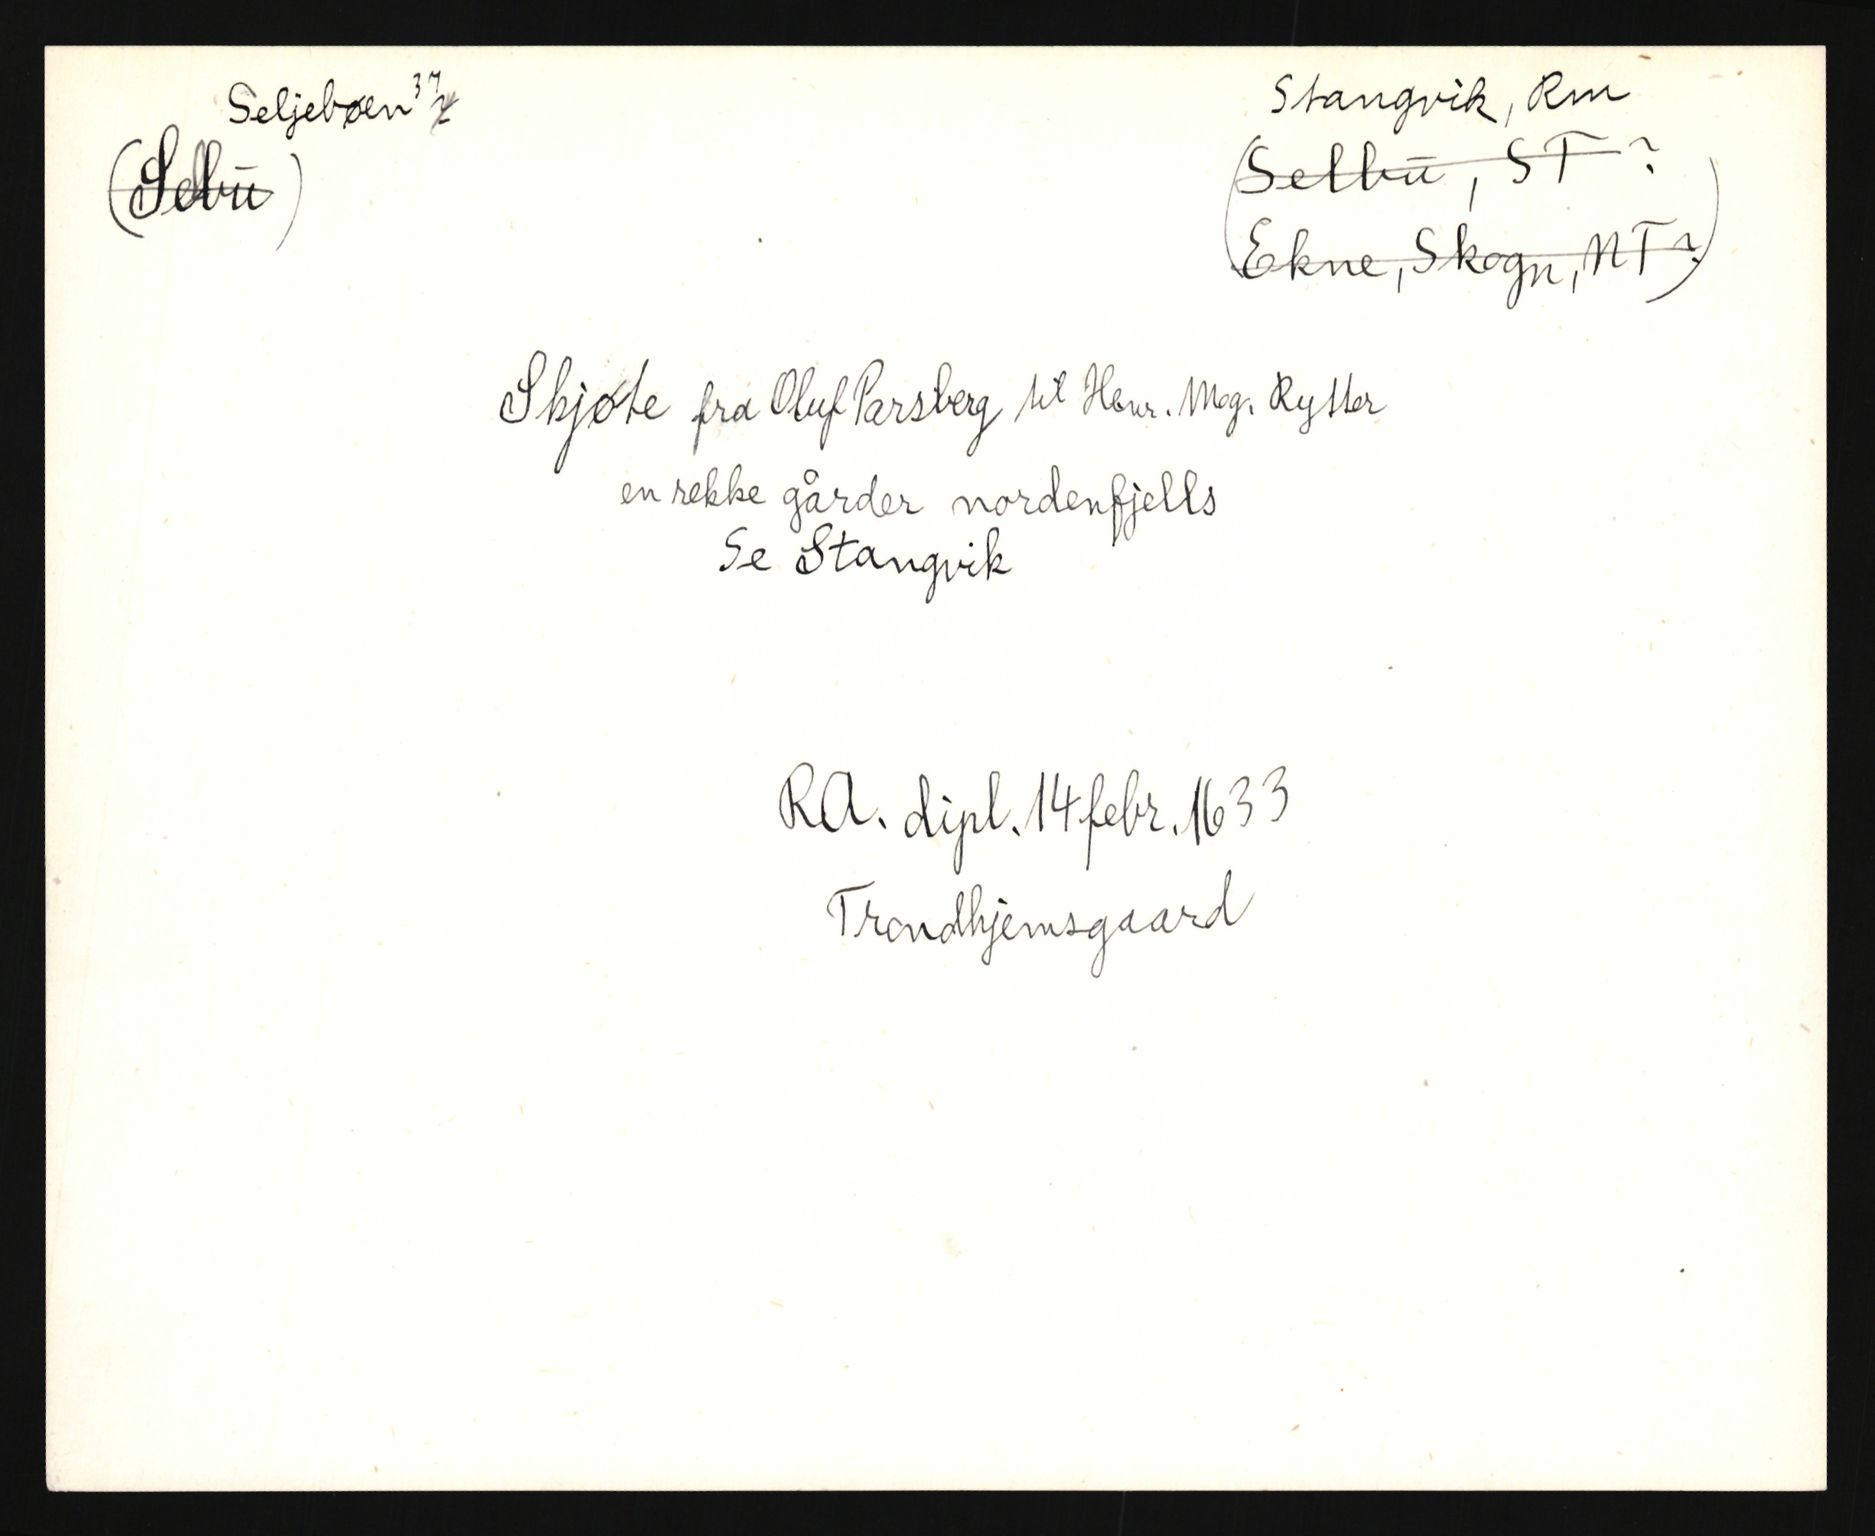 Seljebøen 37
(Selbü)
Stangvik, Rm
(Selbü, ST?
Ekne, Skogn, NT?)
Skjøte fra Oluf Parsberg til Henr. Meg. Rytter
en rekke gårder nordenfjells
Se Stangvik
RA. dipl. 14 febr. 1633
Trondhjemsgaard